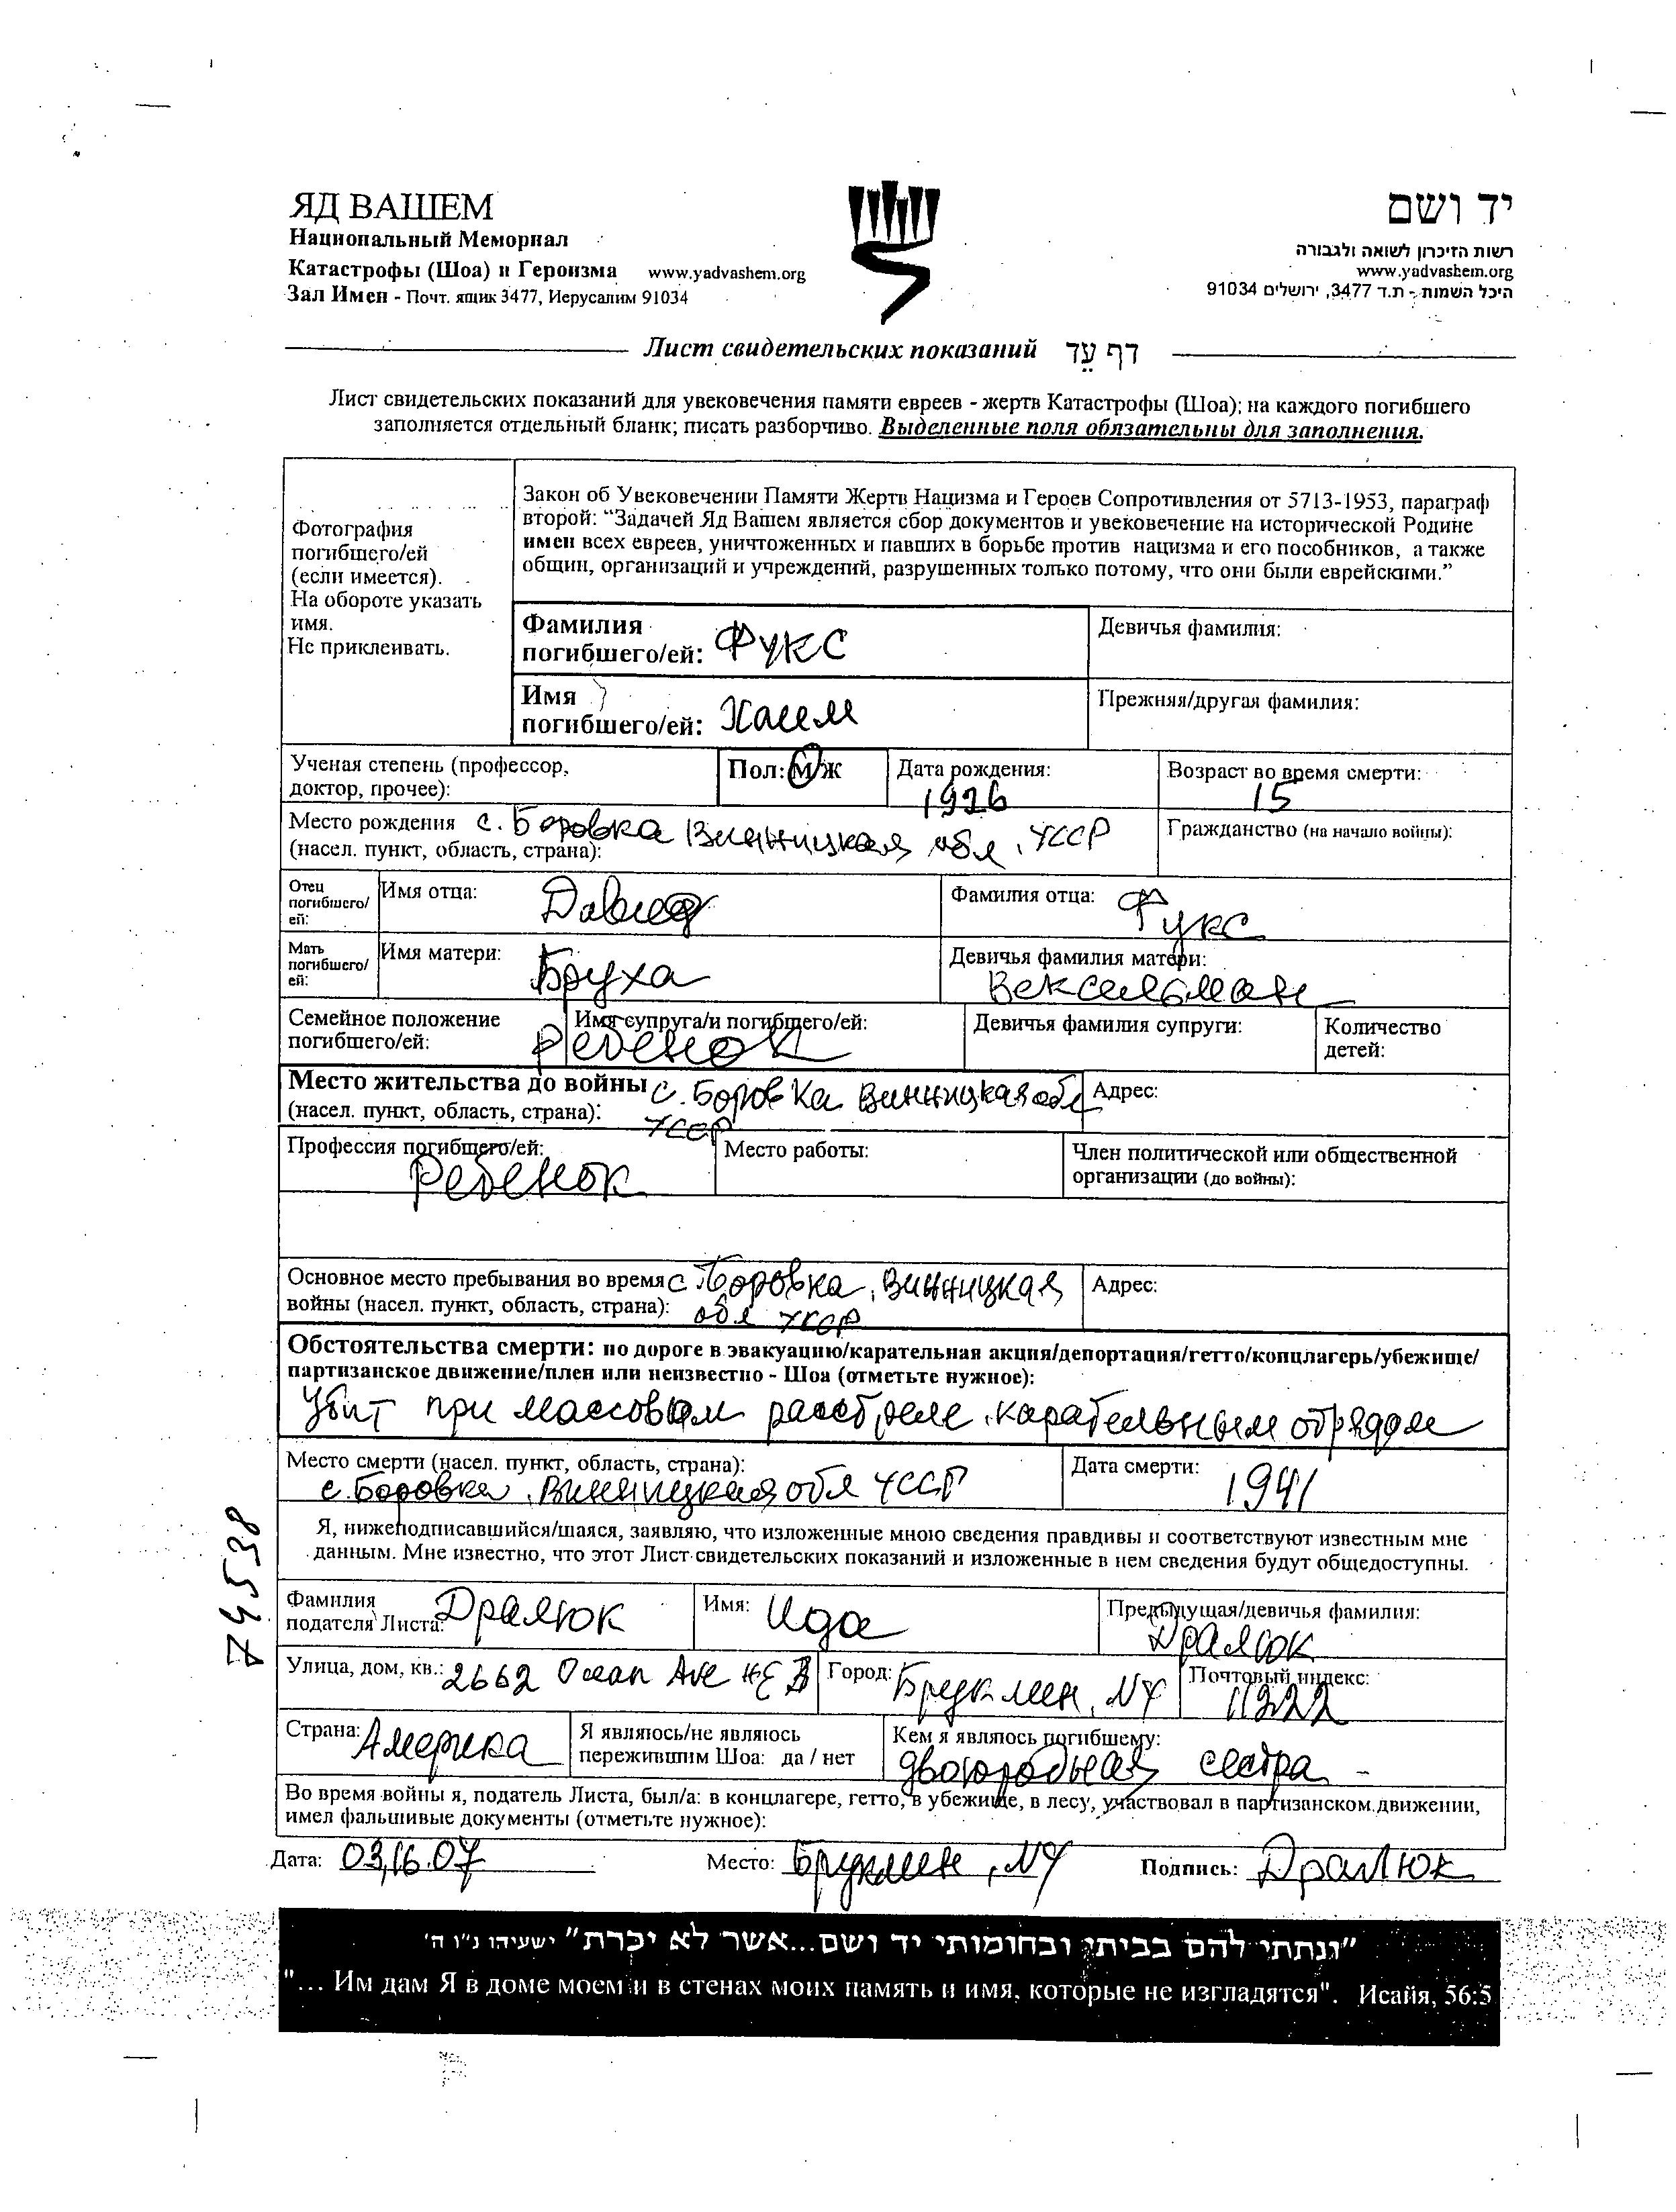 ЯД ВАШЕМ
Национальный Мемориал
Катастрофы (Шоа) и Героизма www.yadvashem.org
Зал Имен - Почт. ящик 3477, Иерусалим 91034
יד ושם
רשות הזיכרון לשואה ולגבורה
www.yadvashem.org
היכל השמות - ת.ד 3477, ירושלים 91034
Лист свидетельских показаний דף עֵד
Лист свидетельских показаний для увековечения памяти евреев - жертв Катастрофы (Шоа); на каждого погибшего
заполняется отдельный бланк; писать разборчиво. Выделенные поля обязательны для заполнения.
Фотография
погибшего/ей
(если имеется).
На обороте указать
имя.
Не приклеивать.
Закон об Увековечении Памяти Жертв Нацизма и Героев Сопротивления от 5713-1953, параграф
второй: “Задачей Яд Вашем является сбор документов и увековечение на исторической Родине
имен всех евреев, уничтоженных и павших в борьбе против нацизма и его пособников, а также
общин, организаций и учреждений, разрушенных только потому, что они были еврейскими.”
Фамилия
погибшего/ей: Фукс
Девичья фамилия:
Имя
погибшего/ей: Хаим
Прежняя/другая фамилия:
Ученая степень (профессор,
доктор, прочее):
Пол: М/Ж
Дата рождения:
1926
Возраст во время смерти:
15
Место рождения с. Боровка Винницкая обл, УССР
(насел. пункт, область, страна):
Гражданство (на начало войны):
Отец
погибшего/
ей:
Имя отца: Давид
Фамилия отца: Фукс
Мать
погибшего/
ей:
Имя матери: Бруха
Девичья фамилия матери:
Вексельман
Семейное положение
погибшего/ей:
Ребенок
Имя супруга/и погибшего/ей:
Девичья фамилия супруги:
Количество
детей:
Место жительства до войны с. Боровка Винницкая обл
(насел. пункт, область, страна): УССР
Адрес:
Профессия погибшего/ей:
Ребенок
Место работы:
Член политической или общественной
организации (до войны):
Основное место пребывания во время с Боровка, Винницкая
войны (насел. пункт, область, страна): обл УССР
Адрес:
Обстоятельства смерти: по дороге в эвакуацию/карательная акция/депортация/гетто/концлагерь/убежище/
партизанское движение/плен или неизвестно - Шоа (отметьте нужное):
Убит при массовом расстреле, карательным отрядом
Место смерти (насел. пункт, область, страна):
с. Боровка, Винницкая обл УССР
Дата смерти:
1941
Я, нижеподписавшийся/шаяся, заявляю, что изложенные мною сведения правдивы и соответствуют известным мне
данным. Мне известно, что этот Лист свидетельских показаний и изложенные в нем сведения будут общедоступны.
Фамилия
податея Листа: Дралюк
Имя: Ида
Предыдущая/девичья фамилия:
Дралюк
Улица, дом, кв.: 2662 Ocean Ave
Город: Бруклин, NY
Почтовый индекс:
Страна: Америка
Я являюсь/не являюсь
пережившим Шоа: да / нет
Кем я являюсь погибшему:
двоюродная сестра
Во время войны я, податель Листа, был/а: в концлагере, гетто, в убежище, в лесу, участвовал в партизанском движении,
имел фальшивые документы (отметьте нужное):
Дата: 03.16.07
Место: Бруклин, NY
Подпись: Дралюк
"ונתתי להם בביתי ובחומותי יד ושם...אשר לא יכרת" ישעיהו נ"ו ה'
"... Им дам Я в доме моем и в стенах моих память и имя, которые не изгладятся". Исайя, 56:5